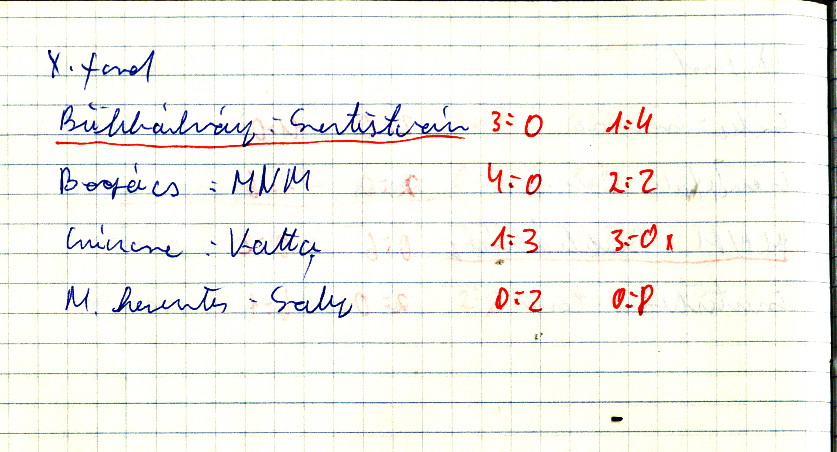 X. ford
Bükkábrány : Szentistván 3:0 1:4
Bogács : MNM 4:0 2:2
Csincse : Vatta 1:3 3:0 x
M. keresztes - Sály 0:2 0: